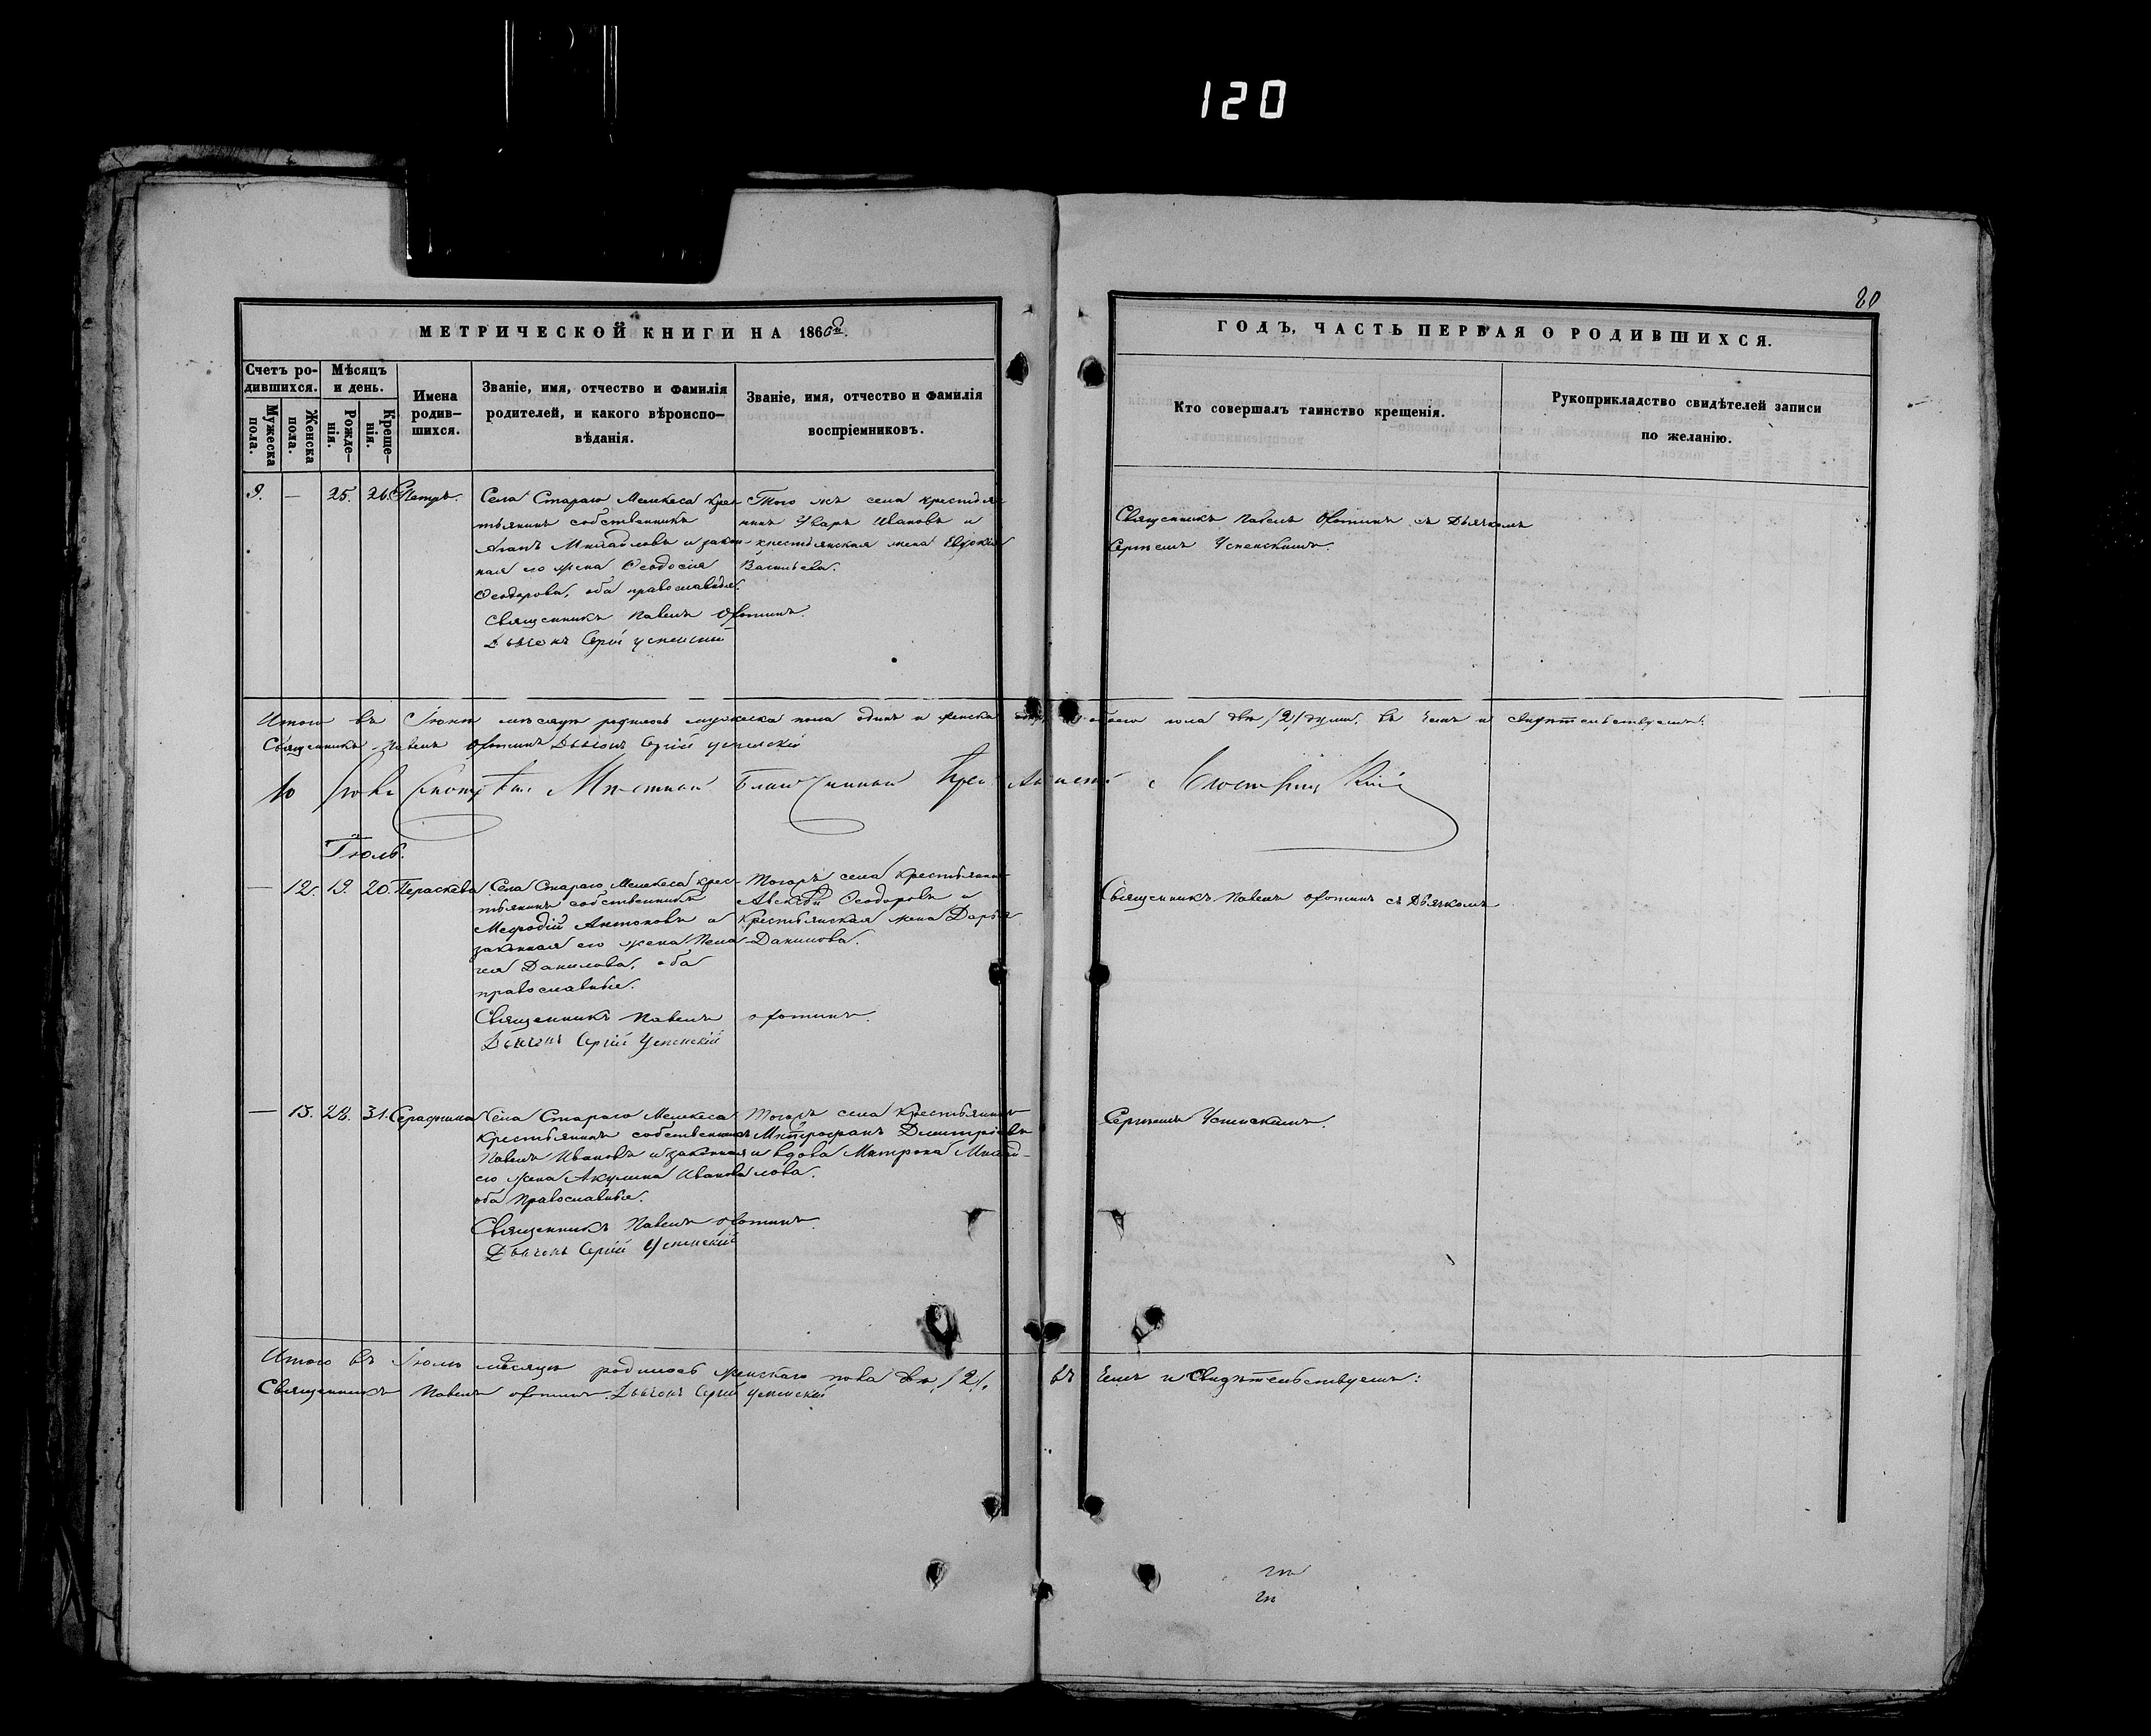 120
80
МЕТРИЧЕСКОЙ КНИГИ НА 1866й
ГОДЪ, ЧАСТЬ ПЕРВАЯ О РОДИВШИХСЯ.
Счетъ родившихся.
Мужеска пола.
Женска пола.
Мѣсяцъ и день.
Рожденія.
Крещенія.
Имена родившихся.
Званіе, имя, отчество и фамилія
родителей, и какого вѣроиспо-
вѣданія.
Званіе, имя, отчество и фамилія
воспріемниковъ.
Кто совершалъ таинство крещенія.
Рукоприкладство свидѣтелей записи
по желанію.
9. — 25. 26. Петръ.
Села Стараго Мелкеса крес-
тьянинъ собственникъ
Михайловъ и закон-
ная его жена Ѳеодосія
Ѳеодорова, оба православные.
Священникъ Павелъ
Дьячекъ Сергій Успенскій
Того же села крестья-
нинъ Уваръ Ивановъ и
крестьянская жена Евдокія
Васильева.
Священникъ Павелъ съ Дьячкомъ
Сергіемъ Успенскимъ.
Итого въ Іюнѣ мѣсяцѣ родилось мужеска пола одинъ и женска обоего пола двѣ /2/ души. Въ чемъ и свидѣтельствуемъ:
Священникъ Павелъ Дьячекъ Сергій Успенскій
Іюль.
— 12. 19. 20. Параскева
Села Стараго Мелкеса крес-
тьянинъ собственникъ
Меѳодій Антоновъ и
законная его жена Пела-
гея Данилова, оба
православные.
Священникъ Павелъ
Дьячекъ Сергій Успенскій
Тогожъ села крестьянинъ
Ѳеодоровъ и
Крестьянская жена Дарья
Данилова.
Священникъ Павелъ съ Дьячкомъ
— 13. 28. 31. Серафима
Села Стараго Мелкеса
крестьянинъ собственникъ
Павелъ Ивановъ и законная
его жена Акулина Иванова
оба Православные.
Священникъ Павелъ
Дьячекъ Сергій Успенскій
Тогожъ села Крестьянинъ
Митрофанъ Димитріевъ
и вдова Матрона Михай-
лова.
Сергіемъ Успенскимъ.
Итого въ Іюлѣ мѣсяцѣ родилось женскаго пола двѣ /2/. въ чемъ и Свидѣтельствуемъ:
Священникъ Павелъ Дьячекъ Сергій Успенскій